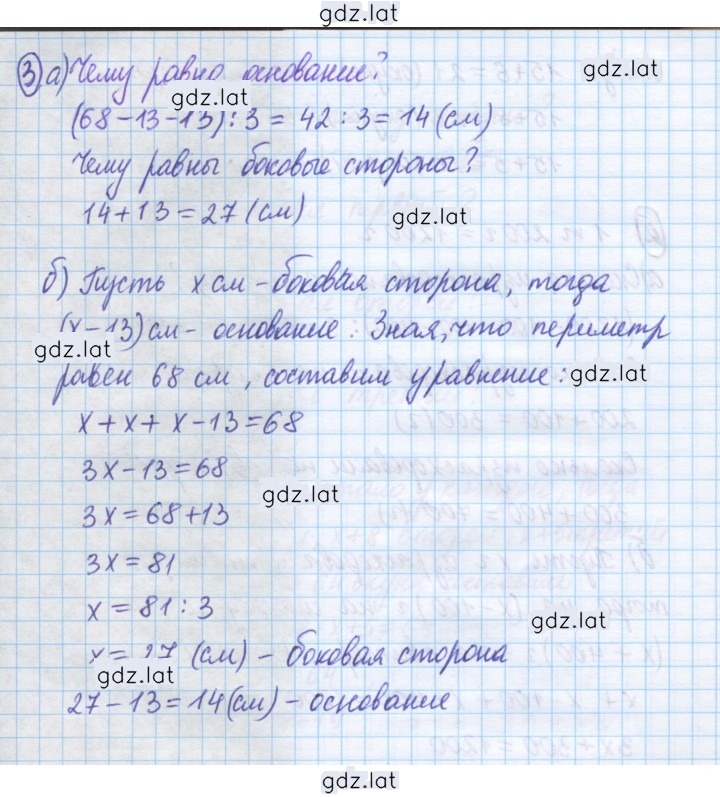 gdz.lat
3 а) Чему равно основание?
gdz.lat
gdz.lat
(68-13-13):3=42:3=14(см)
Чему равны боковые стороны?
14+13=27(см)
gdz.lat
б) Пусть x см - боковая сторона, тогда
(x-13) см - основание. Зная, что периметр
gdz.lat
равен 68 см, составим уравнение:
gdz.lat
x+x+x-13=68
3x-13=68
gdz.lat
3x=68+13
3x=81
x=81:3
gdz.lat
x=27 (см) - боковая сторона
gdz.lat
27-13=14(см) - основание
gdz.lat